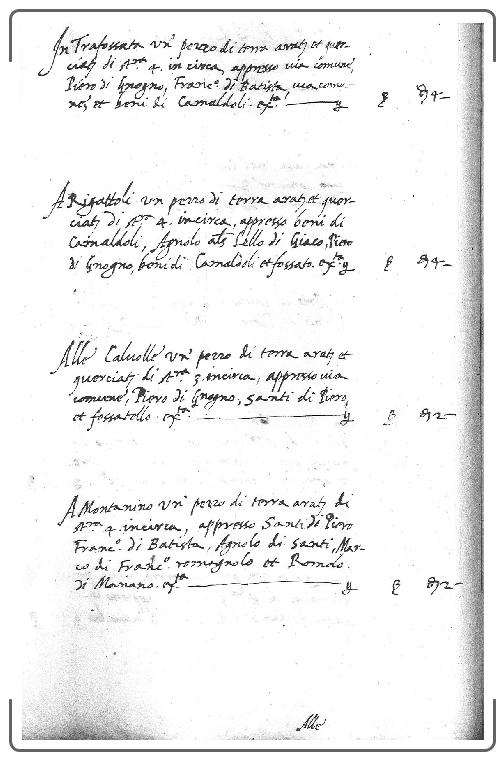 In Trafossata un' pezzo di terra arati et quer-
ciati di st.ra 4. in circa, appresso via comune,
Piero di Gnogno, Franc.o di Batista, via comu-
ne, et beni di Camaldoli. 4
A Rigattoli un pezzo di terra arati et quer-
ciati di st.ra 4. in circa, appresso beni di
Camaldoli, Agnolo als Lello di Giaco, Piero
di Gnogno, beni di Camaldoli et fossato. 4
Alle Calvolle un' pezzo di terra arati et
querciati di st.ra 3. incirca, appresso via
comune, Piero di Gnogno, Santi di Piero,
et fossatello. 2
A Montanino un' pezzo di terra arati di
st.ra 4. incirca, appresso Santi di Piero
Franc.o di Batista, Agnolo di Santi, Mar-
co di Franc.o romagnolo et Romolo
di Mariano. 2
Alle